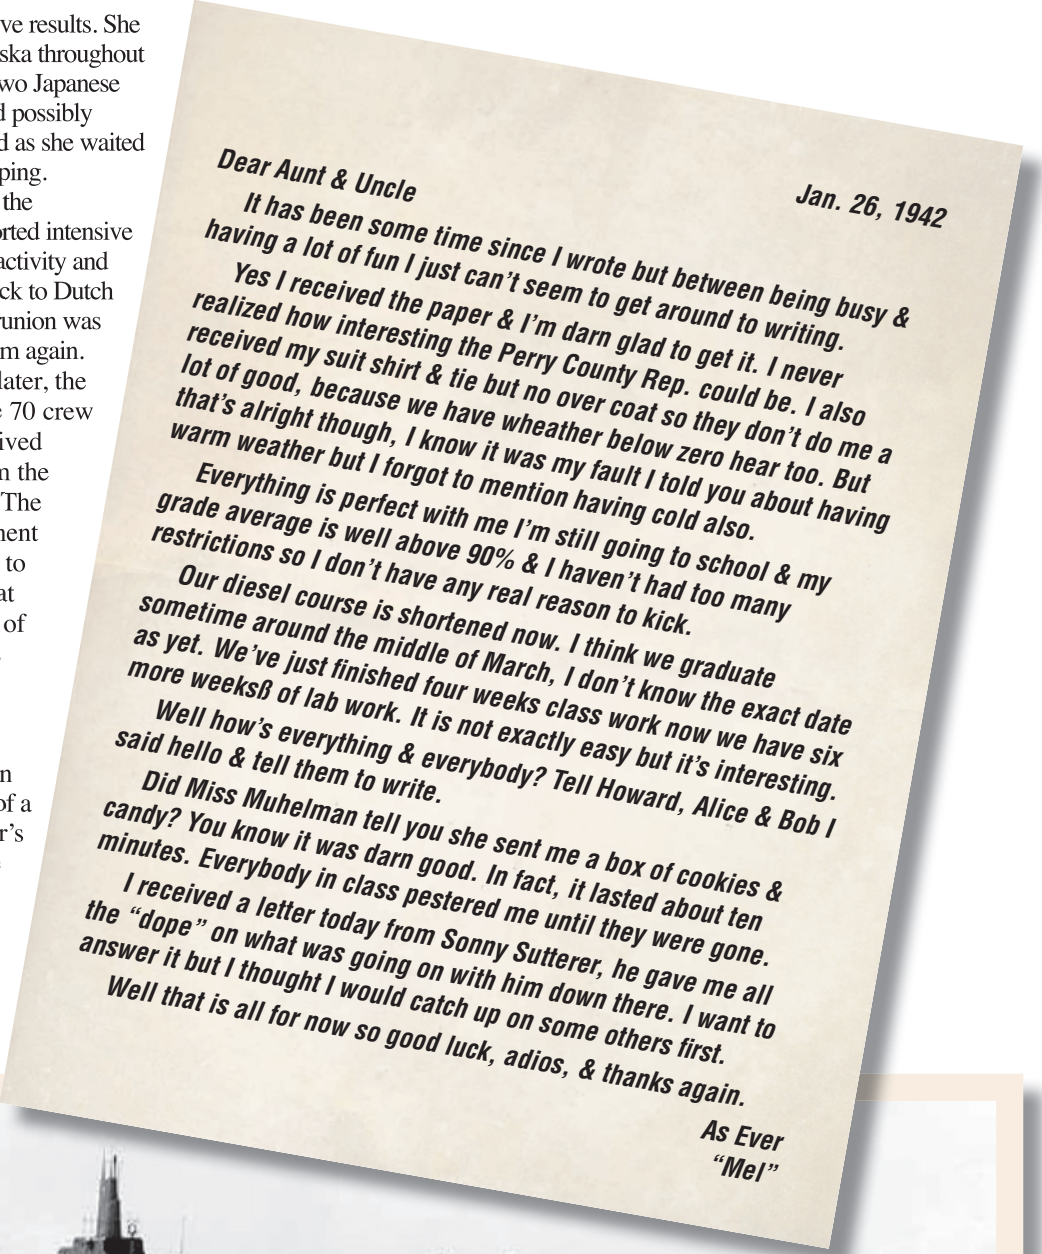 ve results. She
ska throughout
wo Japanese
d possibly
d as she waited
ping.
the
orted intensive
activity and
ck to Dutch
runion was
m again.
later, the
e 70 crew
ived
m the
The
ment
to
at
of
n
of a
r's
Jan. 26, 1942
Dear Aunt & Uncle
It has been some time since I wrote but between being busy &
having a lot of fun I just can't seem to get around to writing.
Yes I received the paper & I'm darn glad to get it. I never
realized how interesting the Perry County Rep. could be. I also
received my suit shirt & tie but no over coat so they don't do me a
lot of good, because we have wheather below zero hear too. But
that's alright though, I know it was my fault I told you about having
warm weather but I forgot to mention having cold also.
Everything is perfect with me I'm still going to school & my
grade average is well above 90% & I haven't had too many
restrictions so I don't have any real reason to kick.
Our diesel course is shortened now. I think we graduate
sometime around the middle of March, I don't know the exact date
as yet. We've just finished four weeks class work now we have six
more weeksß of lab work. It is not exactly easy but it's interesting.
Well how's everything & everybody? Tell Howard, Alice & Bob I
said hello & tell them to write.
Did Miss Muhelman tell you she sent me a box of cookies &
candy? You know it was darn good. In fact, it lasted about ten
minutes. Everybody in class pestered me until they were gone.
I received a letter today from Sonny Sutterer, he gave me all
the “dope” on what was going on with him down there. I want to
answer it but I thought I would catch up on some others first.
Well that is all for now so good luck, adios, & thanks again.
As Ever
“Mel”